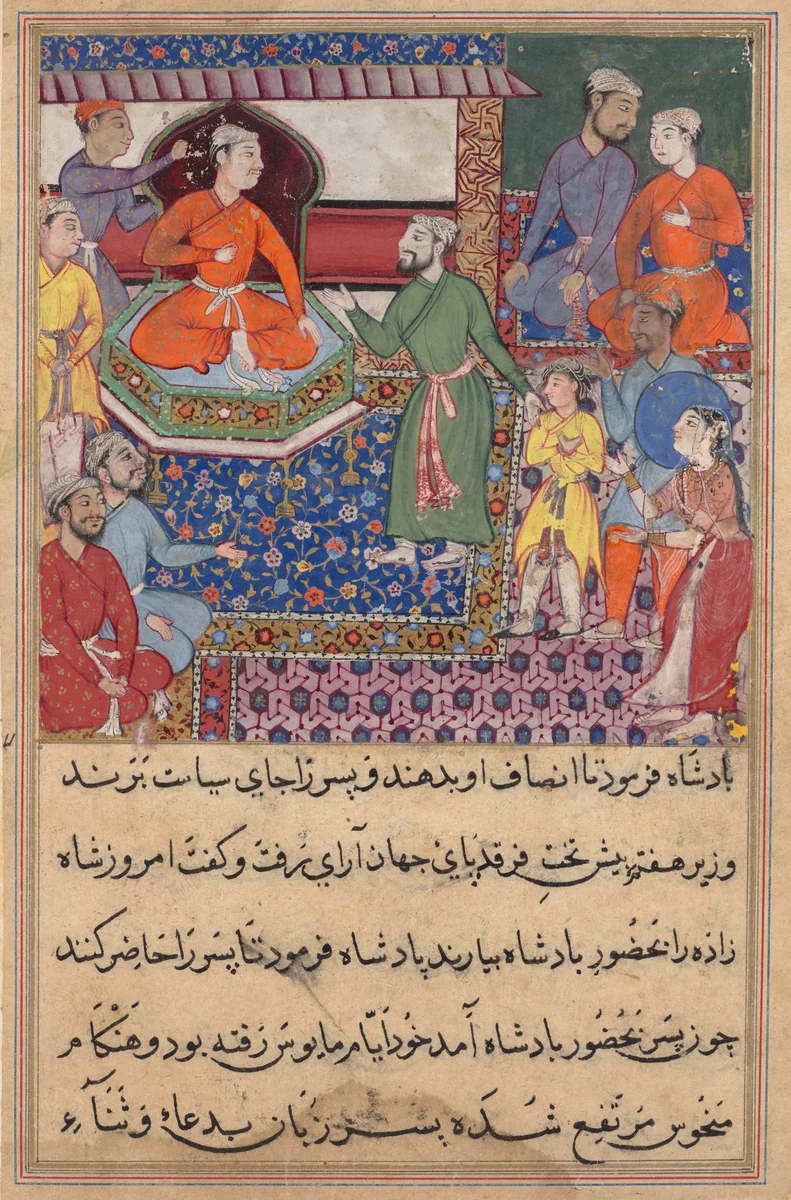 بادشاه فرمود تا انصاف او بدهند و پسر را جای سیاست برند
وزیر هفتم پیش تخت فرقد پای جهان آرای رفت و کفت امروز شاه
زاده را بحضور بادشاه بیارند پادشاه فرمود تا پسر را حاضر کنند
چوز پسر بحضور بادشاه آمد خود ایام مایوس رفته بود و هنکام
منحوس مرتفع شده پسر زبان بدعاء و ثناء